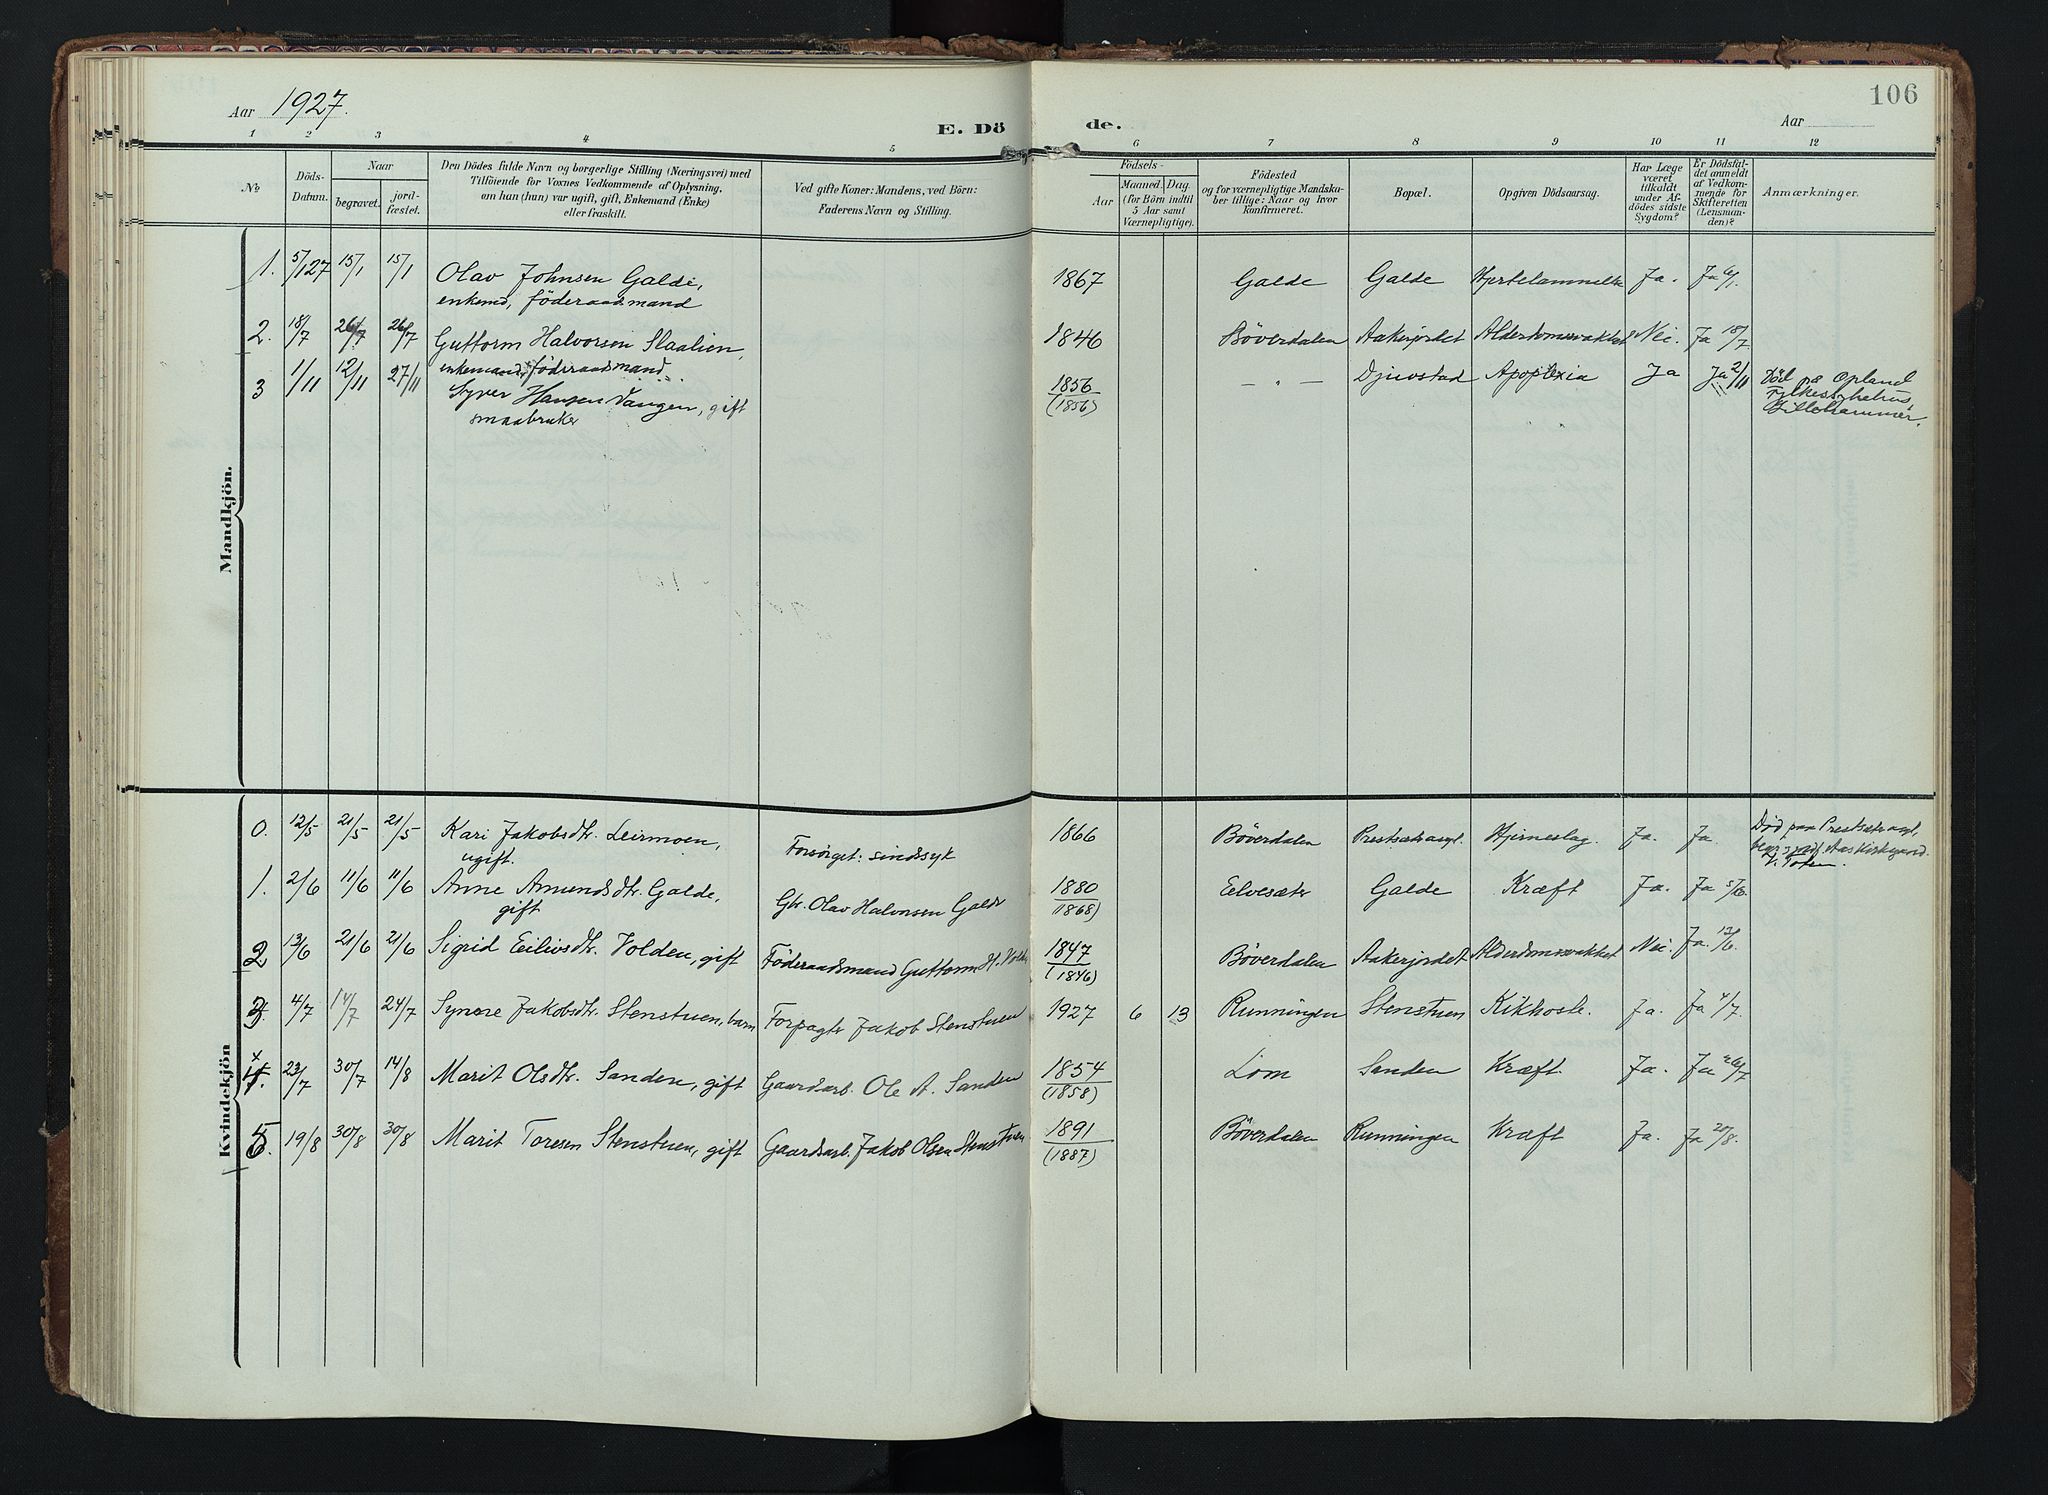 106
Aar 1927.
E. Dö
de.
Aar
1 2 3 4 5 6 7 8 9 10 11 12
No
Döds-
Datum.
Naar
begravet.
jord-
fæstet.
Den Dödes fulde Navn og borgerlige Stilling (Næringsvei) med
Tilföiende for Voxnes Vedkommende af Oplysning,
om han (hun) var ugift, gift, Enkemand (Enke)
eller fraskilt.
Ved gifte Koner: Mandens, ved Börn:
Faderens Navn og Stilling.
Födsels-
Aar
Maaned. Dag.
(for Börn indtil
5 Aar samt
Værnepligtige).
Födested
og for værnepligtige Mandska-
ber tillige: Naar og hvor
konfirmeret.
Bopæl.
Opgiven Dödsaarsag.
Har Læge
været
tilkaldt
under Af-
dödes sidste
Sygdom?
Er Dödsfal-
det anmeldt
af Vedkom-
mende for
Skifteretten
(Lensman-
den)?
Anmærkninger.
Mandkjön.
1. 5/1 27 15/1 15/1 Olav Johnsen Galde, 1867 Galde Galde Ja. Ja 6/1.
enkemd, föderaadsmand
2. 18/7 26/7 26/7 Guttorm Halvorsen Slaalien, 1846 Böverdalen Aakerjordet Alderdomssvakhet Nei. Ja 18/7
enkemand, föderaadsmand.
3 1/11 12/11 27/11 Syver Hansen Vangen, gift 1856 — " — Djuvstad Apoplexia Ja Ja 2/11 Död på Opland
(1856) Fylkessykehus,
smaabruker Lillehammer.
Kvindekjön
0. 12/5 21/5 21/5 Kari Jakobsdtr. Leirmoen, Forsörget: sindssyk 1866 Böverdalen Prestsæterasyl. Hjerneslag Ja. Ja. Död paa Prestsæterasyl,
ugift. begr. ved Aas Kirkegaard
V. Toten.
1. 2/6 11/6 11/6 Anne Amundsdtr. Galde, Gbr. Olav Halvorsen Galde 1880 Eelvesæter Galde Kræft Ja. Ja 5/6.
gift (1868)
2 13/6 21/6 21/6 Sigrid Eilivsdtr. Volden, gift Föderaadsmand Guttorm H. Volden 1847 Böverdalen Aakerjordet Alderdomssvakhet Nei. Ja. 13/6.
(1846)
3. 4/7 14/7 24/7 Synöve Jakobsdtr. Stenstuen, barn Forpagter Jakob Stenstuen 1927 6 13 Runningen Stenstuen Kikhoste. Ja. Ja 4/7.
4. 23/7 30/7 14/8 Marit Olsdtr. Sanden, gift Gaardarb. Ole A. Sanden 1854 Lom Sanden Kræft. Ja. Ja 26/7
(1858)
5. 19/8 30/8 30/8 Marit Toresen Stenstuen, gift Gaardsarb. Jakob Olsen Stenstuen 1891 Böverdalen Runningen Kræft Ja. Ja 20/8.
(1887)